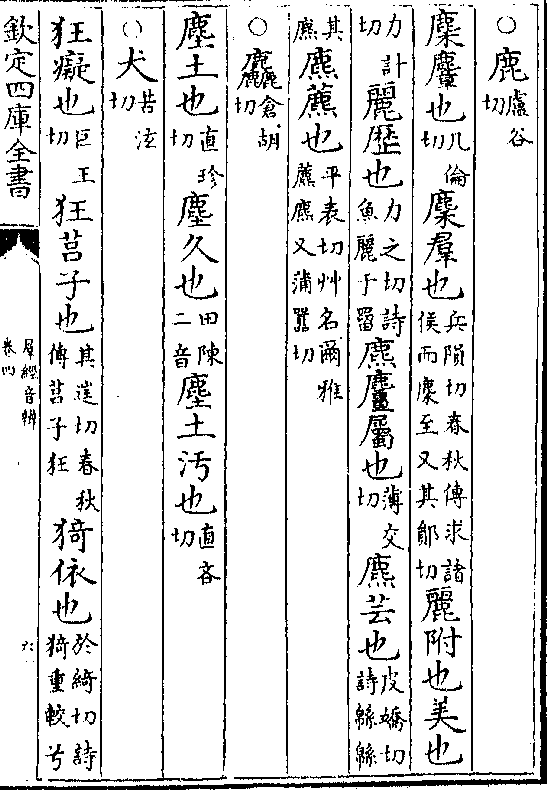 ○鹿盧谷切
麋麞也几倫切麋羣也兵隕切春秋傳求諸侯而麋至又其鄖切麗附也美也
力計切麗歷也力之切詩魚麗于罶麃麠屬也薄交切麃芸也皮嬌切詩緜緜
其麃麃藨也平表切艸名爾雅藨麃又蒲嚻切
○麤倉胡切
塵土也直珍切塵久也田陳二音塵土汚也直吝切
○犬苦泫切
狂癡也巨王切狂莒子也其迋切春秋傳莒子狂猗依也於綺切詩猗重較兮
欽定四庫全書
羣經音辨
卷四
六